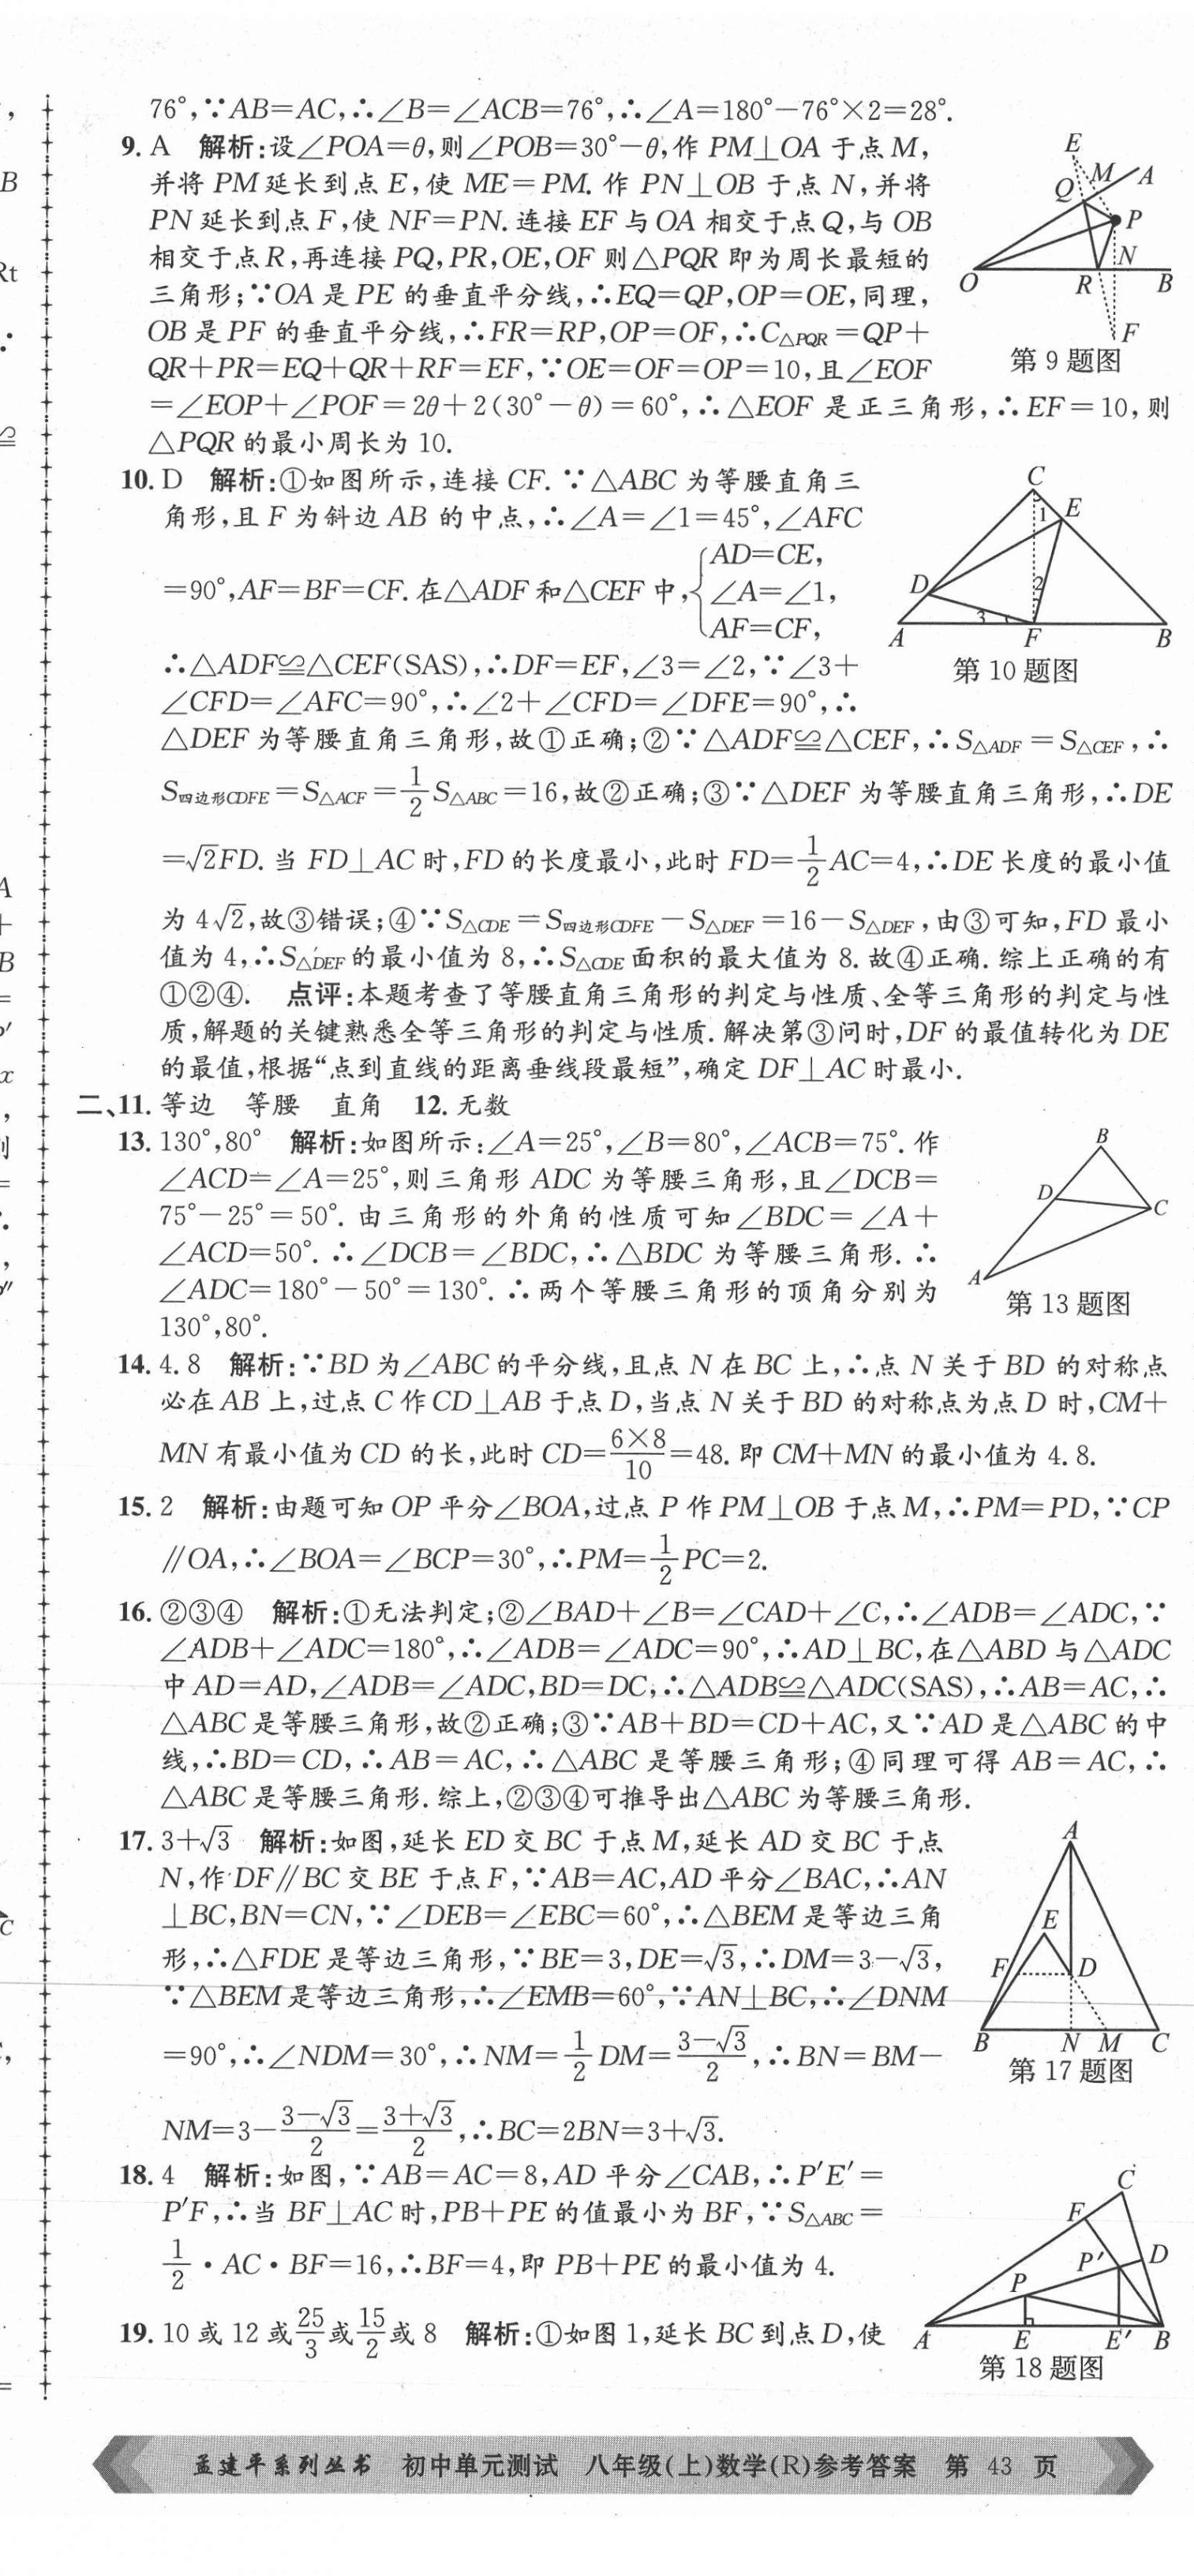 76°,∵AB=AC,∴∠B=∠ACB=76°,∴∠A=180°-76°×2=28°.
9. A 解析:设∠POA=θ,则∠POB=30°-θ,作 PM⊥OA 于点M,
并将 PM 延长到点 E,使 ME=PM. 作 PN⊥OB 于点 N,并将
PN 延长到点 F,使 NF=PN. 连接 EF 与 OA 相交于点Q,与 OB
相交于点R,再连接 PQ,PR,OE,OF 则△PQR 即为周长最短的
三角形;∵OA 是 PE 的垂直平分线,∴EQ=QP,OP=OE,同理,
OB 是 PF 的垂直平分线,∴FR=RP,OP=OF,∴C△PQR=QP+
QR+PR=EQ+QR+RF=EF,∵OE=OF=OP=10,且∠EOF
=∠EOP+∠POF=2θ+2(30°-θ)=60°,∴△EOF 是正三角形,∴EF=10,则
△PQR 的最小周长为 10.
E
M A
Q
P
N
O R B
F
第 9 题图
10. D 解析:①如图所示,连接 CF. ∵△ABC 为等腰直角三
角形,且 F 为斜边 AB 的中点,∴∠A=∠1=45°,∠AFC
=90°,AF=BF=CF. 在△ADF 和△CEF 中,{AD=CE,
∠A=∠1,
AF=CF,
∴△ADF≌△CEF(SAS),∴DF=EF,∠3=∠2,∵∠3+
∠CFD=∠AFC=90°,∴∠2+∠CFD=∠DFE=90°,∴
△DEF 为等腰直角三角形,故①正确;②∵△ADF≌△CEF,∴S△ADF=S△CEF,∴
S四边形CDFE=S△ACF=1/2 S△ABC=16,故②正确;③∵△DEF 为等腰直角三角形,∴DE
=√2FD. 当 FD⊥AC 时,FD 的长度最小,此时 FD=1/2 AC=4,∴DE 长度的最小值
为 4√2,故③错误;④∵S△CDE=S四边形CDFE-S△DEF=16-S△DEF,由③可知,FD 最小
值为 4,∴S△DEF的最小值为 8,∴S△CDE面积的最大值为 8. 故④正确. 综上正确的有
①②④. 点评:本题考查了等腰直角三角形的判定与性质、全等三角形的判定与性
质,解题的关键熟悉全等三角形的判定与性质. 解决第③问时,DF 的最值转化为 DE
的最值,根据“点到直线的距离垂线段最短”,确定 DF⊥AC 时最小.
C
1 E
D 2
3
A F B
第 10 题图
二、11. 等边 等腰 直角 12. 无数
13. 130°,80° 解析:如图所示:∠A=25°,∠B=80°,∠ACB=75°. 作
∠ACD=∠A=25°,则三角形 ADC 为等腰三角形,且∠DCB=
75°-25°=50°. 由三角形的外角的性质可知∠BDC=∠A+
∠ACD=50°. ∴∠DCB=∠BDC,∴△BDC 为等腰三角形. ∴
∠ADC=180°-50°=130°. ∴两个等腰三角形的顶角分别为
130°,80°.
B
D
C
A
第 13 题图
14. 4.8 解析:∵BD 为∠ABC 的平分线,且点 N 在 BC 上,∴点 N 关于 BD 的对称点
必在 AB 上,过点 C 作 CD⊥AB 于点 D,当点 N 关于 BD 的对称点为点 D 时,CM+
MN 有最小值为 CD 的长,此时 CD=6×8/10=48. 即 CM+MN 的最小值为 4.8.
15. 2 解析:由题可知 OP 平分∠BOA,过点 P 作 PM⊥OB 于点 M,∴PM=PD,∵CP
∥OA,∴∠BOA=∠BCP=30°,∴PM=1/2 PC=2.
16. ②③④ 解析:①无法判定;②∠BAD+∠B=∠CAD+∠C,∴∠ADB=∠ADC,∵
∠ADB+∠ADC=180°,∴∠ADB=∠ADC=90°,∴AD⊥BC,在△ABD 与△ADC
中 AD=AD,∠ADB=∠ADC,BD=DC,∴△ADB≌△ADC(SAS),∴AB=AC,∴
△ABC 是等腰三角形,故②正确;③∵AB+BD=CD+AC,又∵AD 是△ABC 的中
线,∴BD=CD,∴AB=AC,∴△ABC 是等腰三角形;④同理可得 AB=AC,∴
△ABC 是等腰三角形. 综上,②③④可推导出△ABC 为等腰三角形.
17. 3+√3 解析:如图,延长 ED 交 BC 于点 M,延长 AD 交 BC 于点
N,作 DF∥BC 交 BE 于点 F,∵AB=AC,AD 平分∠BAC,∴AN
⊥BC,BN=CN,∵∠DEB=∠EBC=60°,∴△BEM 是等边三角
形,∴△FDE 是等边三角形,∵BE=3,DE=√3,∴DM=3-√3,
∵△BEM 是等边三角形,∴∠EMB=60°,∵AN⊥BC,∴∠DNM
=90°,∴∠NDM=30°,∴NM=1/2 DM=(3-√3)/2,∴BN=BM-
NM=3-(3-√3)/2=(3+√3)/2,∴BC=2BN=3+√3.
A
E
F D
B N M C
第 17 题图
18. 4 解析:如图,∵AB=AC=8,AD 平分∠CAB,∴P′E′=
P′F,∴当 BF⊥AC 时,PB+PE 的值最小为 BF,∵S△ABC=
1/2 · AC · BF=16,∴BF=4,即 PB+PE 的最小值为 4.
C
F
P′ D
P
A E E′ B
第 18 题图
19. 10 或 12 或 25/3 或 15/2 或 8 解析:①如图 1,延长 BC 到点 D,使
孟建平系列丛书 初中单元测试 八年级(上)数学(R)参考答案 第 43 页